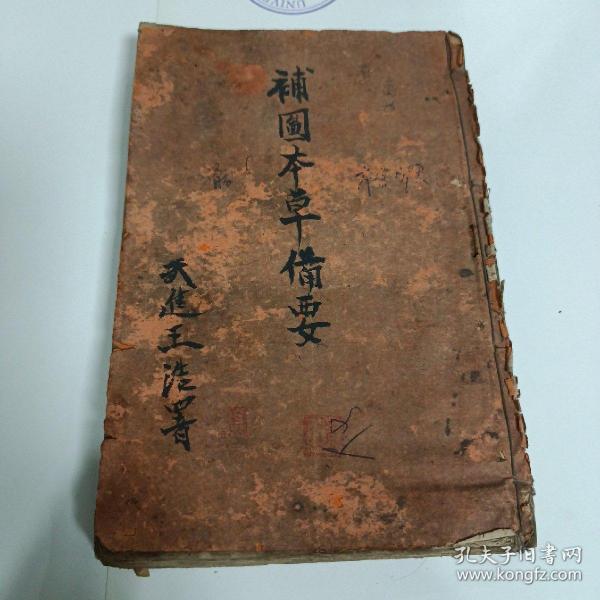 補圖本草備要
天進王浩署
孔夫子旧书网
www.kongfz.com